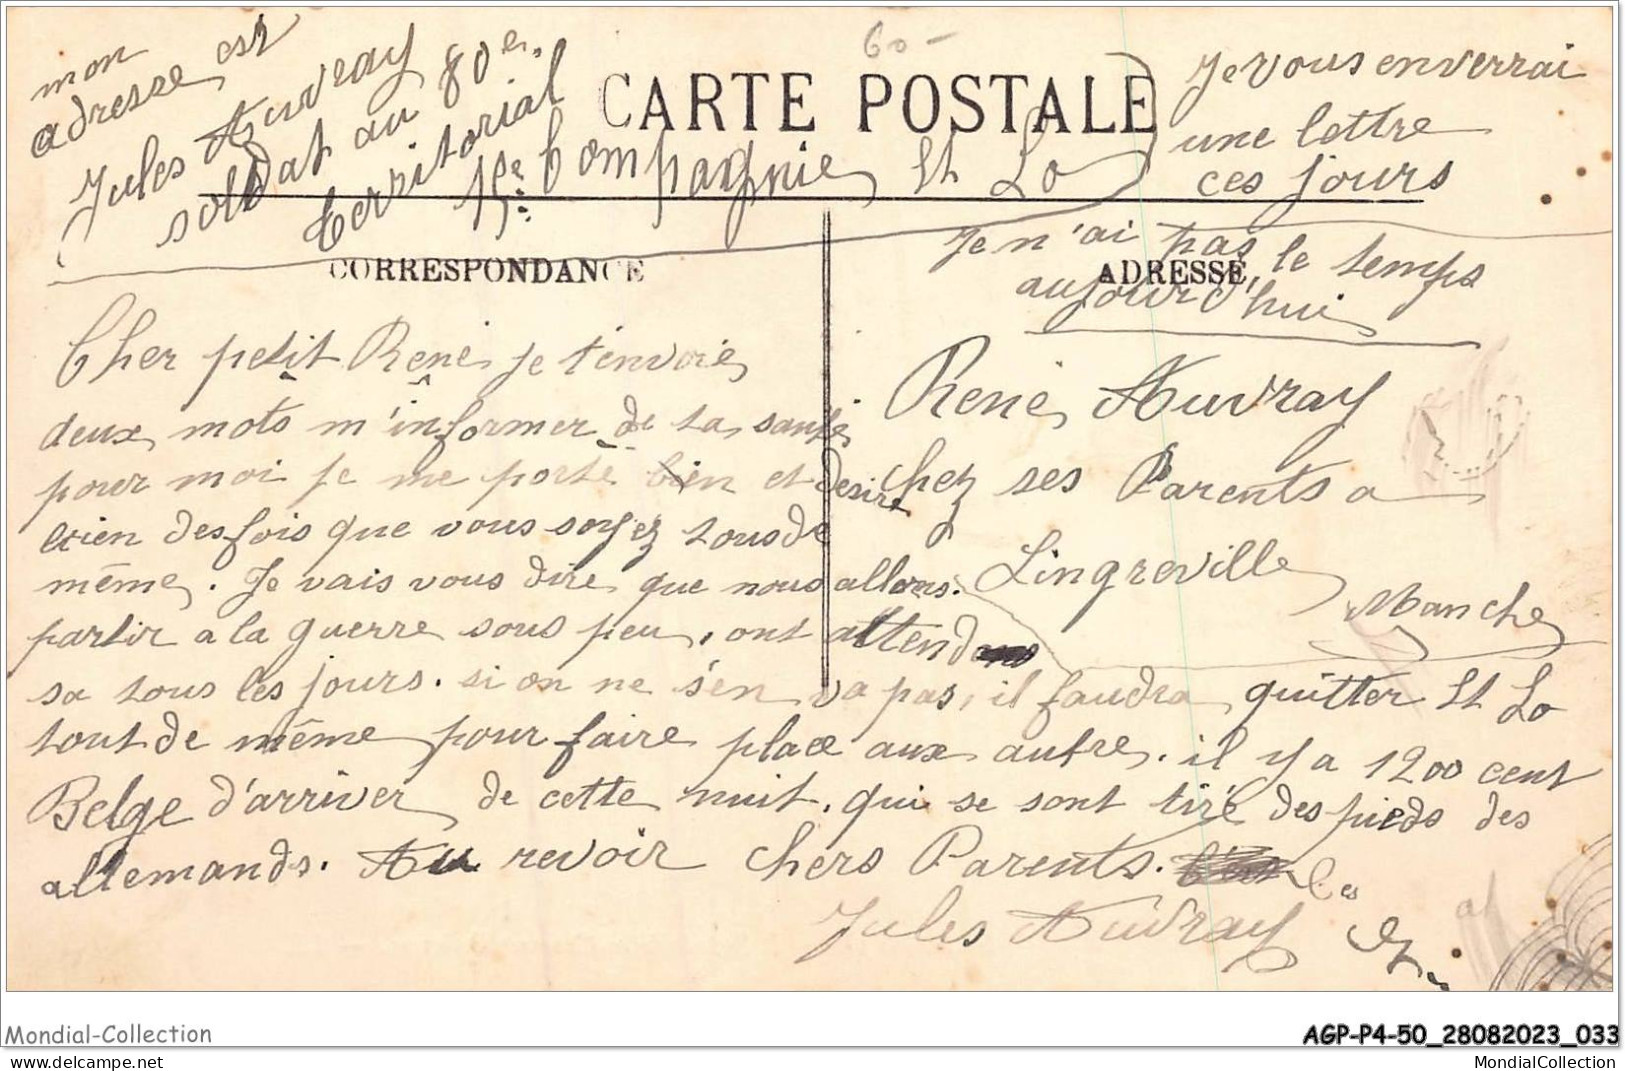 60 -
mon
adresse est
Jules Auvray
soldat au 80e
territorial
15e Compagnie St Lo
Je vous enverrai
une lettre
ces jours
Je n'ai pas le temps
aujourd'hui
CARTE POSTALE
CORRESPONDANCE
ADRESSE
Cher petit René je t'envoie
deux mots m'informer de ta santé
pour moi je me porte bien et desire
bien des fois que vous soyez tous de
même. Je vais vous dire que nous allons
partir a la guerre sous peu, ont attend
sa tous les jours. si on ne s'en va pas, il faudra quitter St Lo
tout de même pour faire place aux autre. il y a 1200 cent
Belge d'arriver de cette nuit. qui se sont tiré des pieds des
allemands. Au revoir chers Parents.
Jules Auvray
René Auvray
chez ses Parents a
Lingreville
Manche
Mondial-Collection
AGP-P4-50_28082023_033
MondialCollection